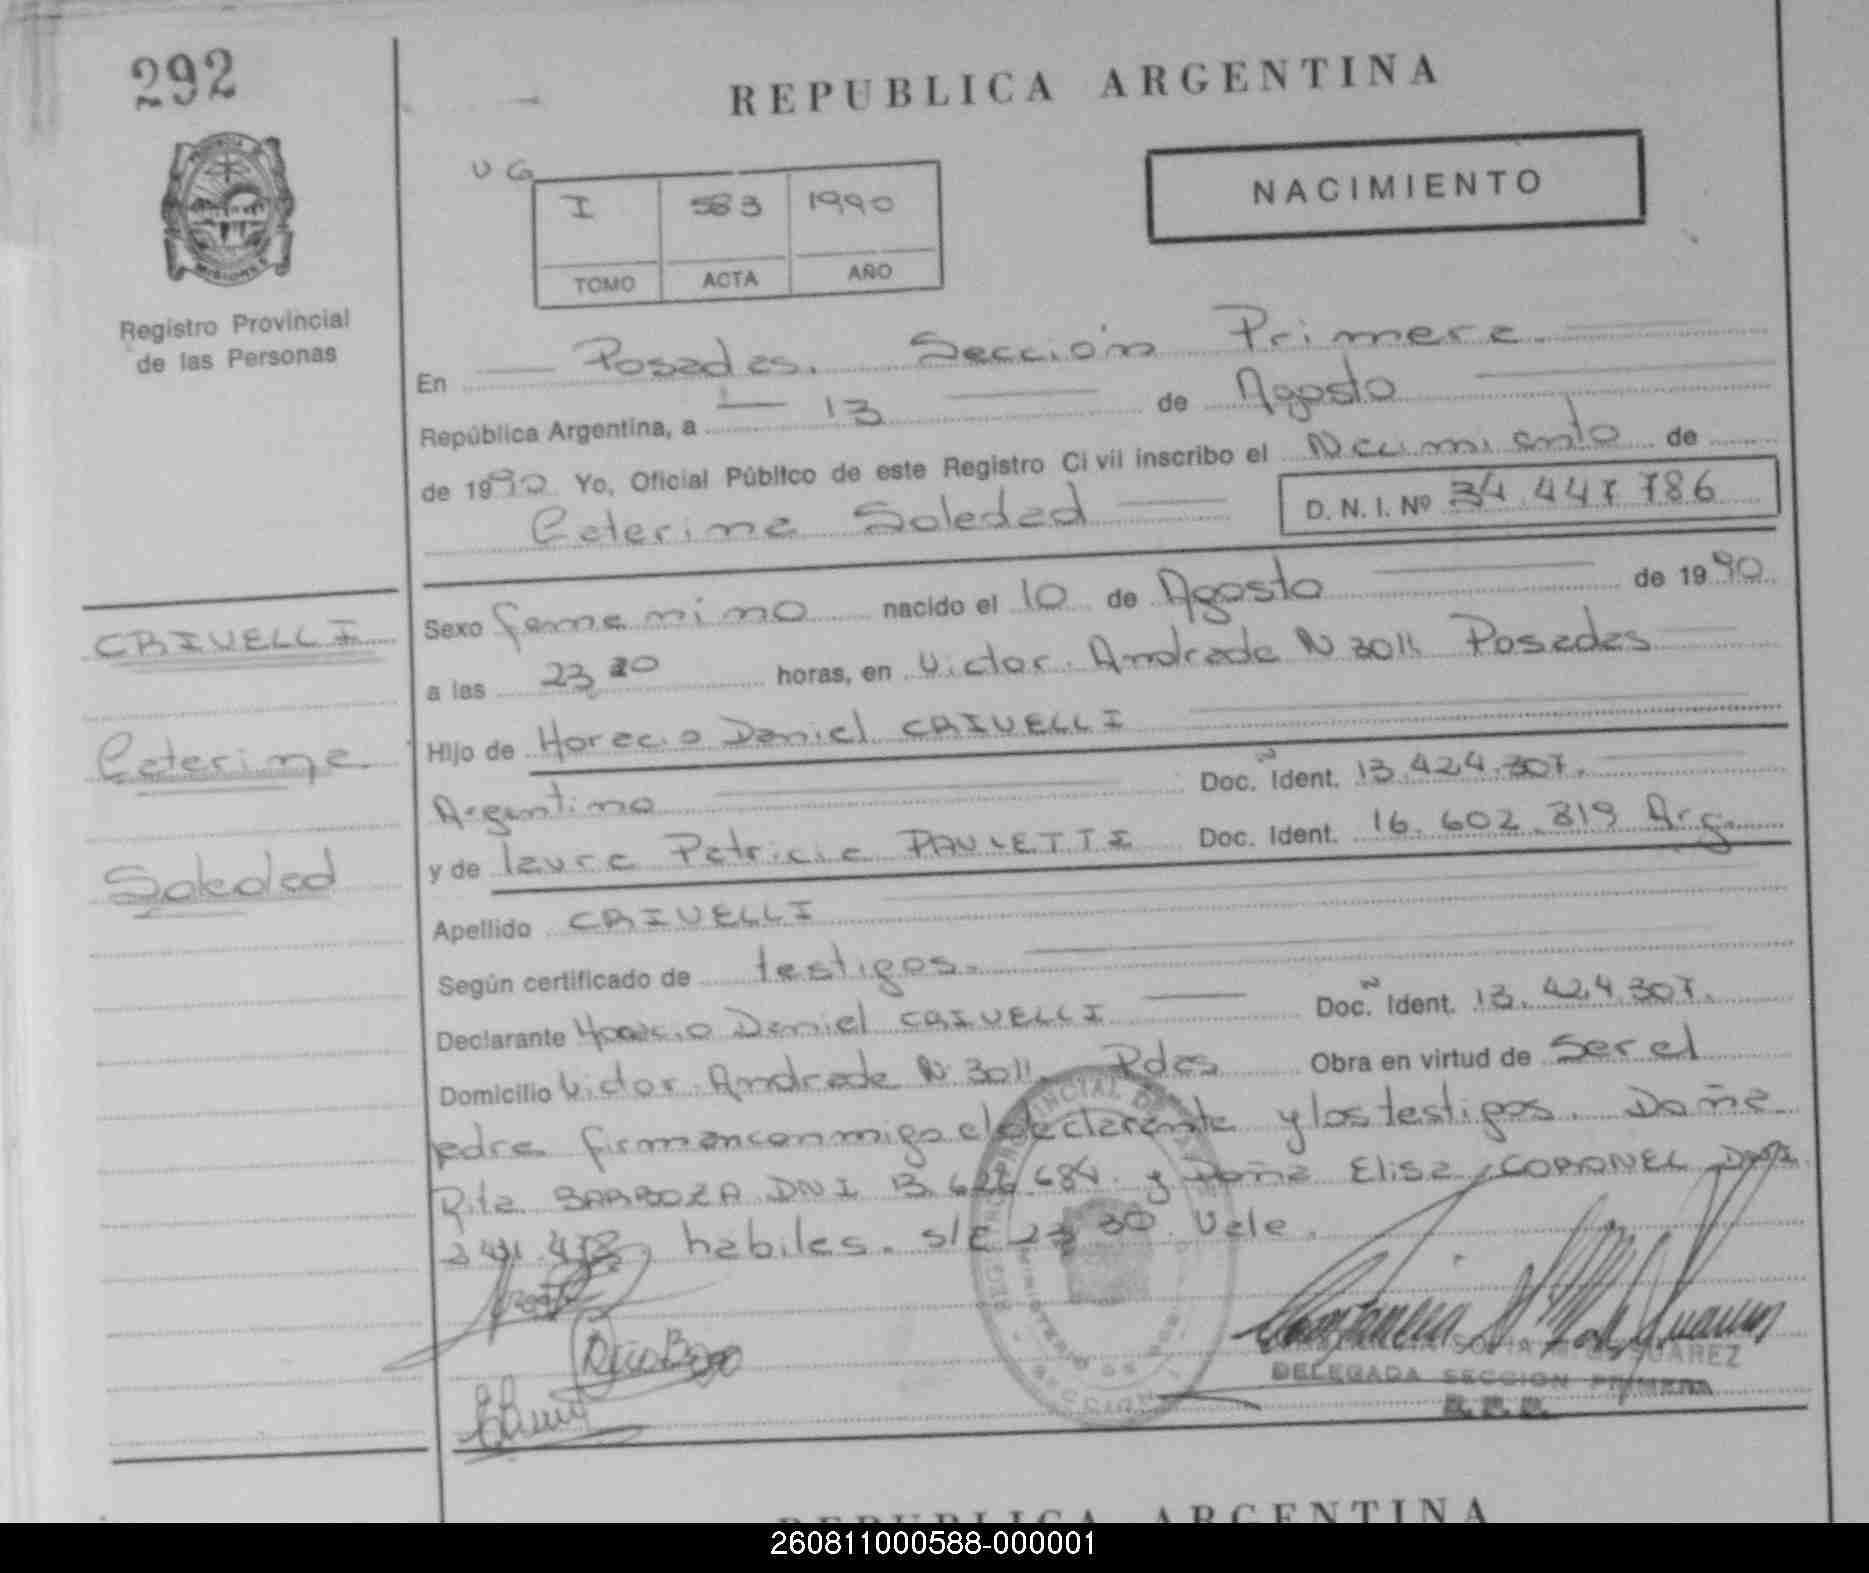 292
REPUBLICA ARGENTINA
NACIMIENTO
UG
I 583 1990
TOMO ACTA AÑO
PROVINCIA
MISIONES
Registro Provincial
de las Personas
En Posadas. Sección Primera
República Argentina, a 13 de Agosto
de 1990 Yo, Oficial Público de este Registro Civil inscribo el Nacimiento de
Caterina Soledad D. N. I. Nº 34.447.786
Sexo femenino nacido el 10 de Agosto de 1990
a las 23 20 horas, en Victor Andrade N 3011 Posadas
Hijo de Horacio Daniel CRIVELLI
Argentino Doc. Ident. 13.424.307.
y de laura Patricia PAULETTI Doc. Ident. 16.602.819 Arg.
Apellido CRIVELLI
Según certificado de testigos.
Declarante Horacio Daniel CRIVELLI Doc. Ident. 13.424.307.
Domicilio Victor Andrade N 3011 Pdas Obra en virtud de Ser el
padre firman conmigo el declarante y los testigos. Doña
Rita BARBOZA DNI 13.626.684 y Doña Elisa CORONEL DNI
habiles. s/e 23 30 Vale.
CRIVELLI
Caterina
Soledad
SUAREZ
DELEGADA SECCION PRIMERA
REPUBLICA ARGENTINA
260811000588-000001